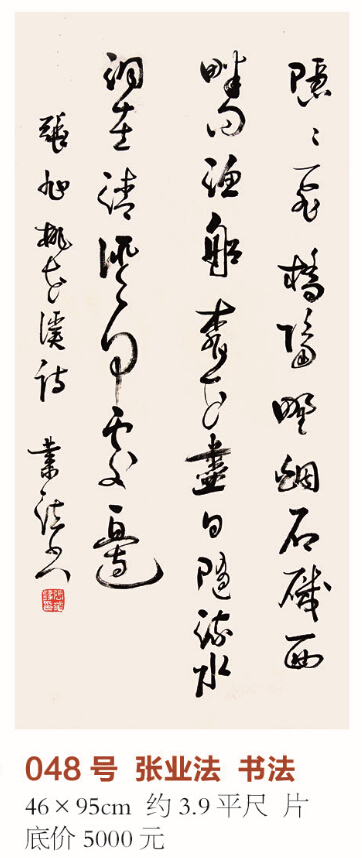 隱〻飛橋隔野烟石磯西
畔问渔船桃花盡日随流水
洞在清溪何處邊
張旭桃花溪诗 業法书
048号 张业法 书法
46×95cm 约3.9平尺 片
底价5000元